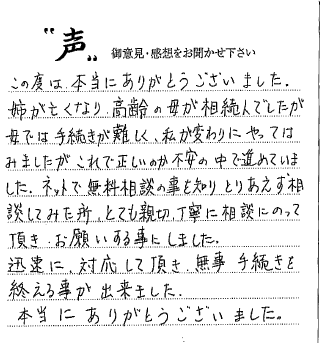 〝声〟 御意見・感想をお聞かせ下さい
この度は、本当にありがとうございました。
姉が亡くなり、高齢の母が相続人でしたが
母では手続きが難しく、私が変わりにやっては
みましたがこれで正しいのか不安の中で進めていま
した。ネットで無料相談の事を知りとりあえず相
談してみた所、とても親切、丁寧に相談にのって
頂き、お願いする事にしました。
迅速に、対応して頂き、無事手続きを
終える事が出来ました。
本当にありがとうございました。